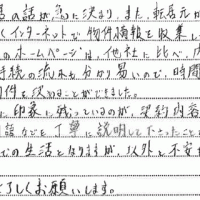 居の話が急に決まり、また、転居元が
くインターネットで物件情報を収集し
のホームページは、他社に比べ、内
手続の流れも分かり易いので、時間
物件を決めることができました。
に印象に残っているのが、契約内容
話などを丁寧に説明して下さったこと
での生活となりますが、以外と不安
了しくお願いします。